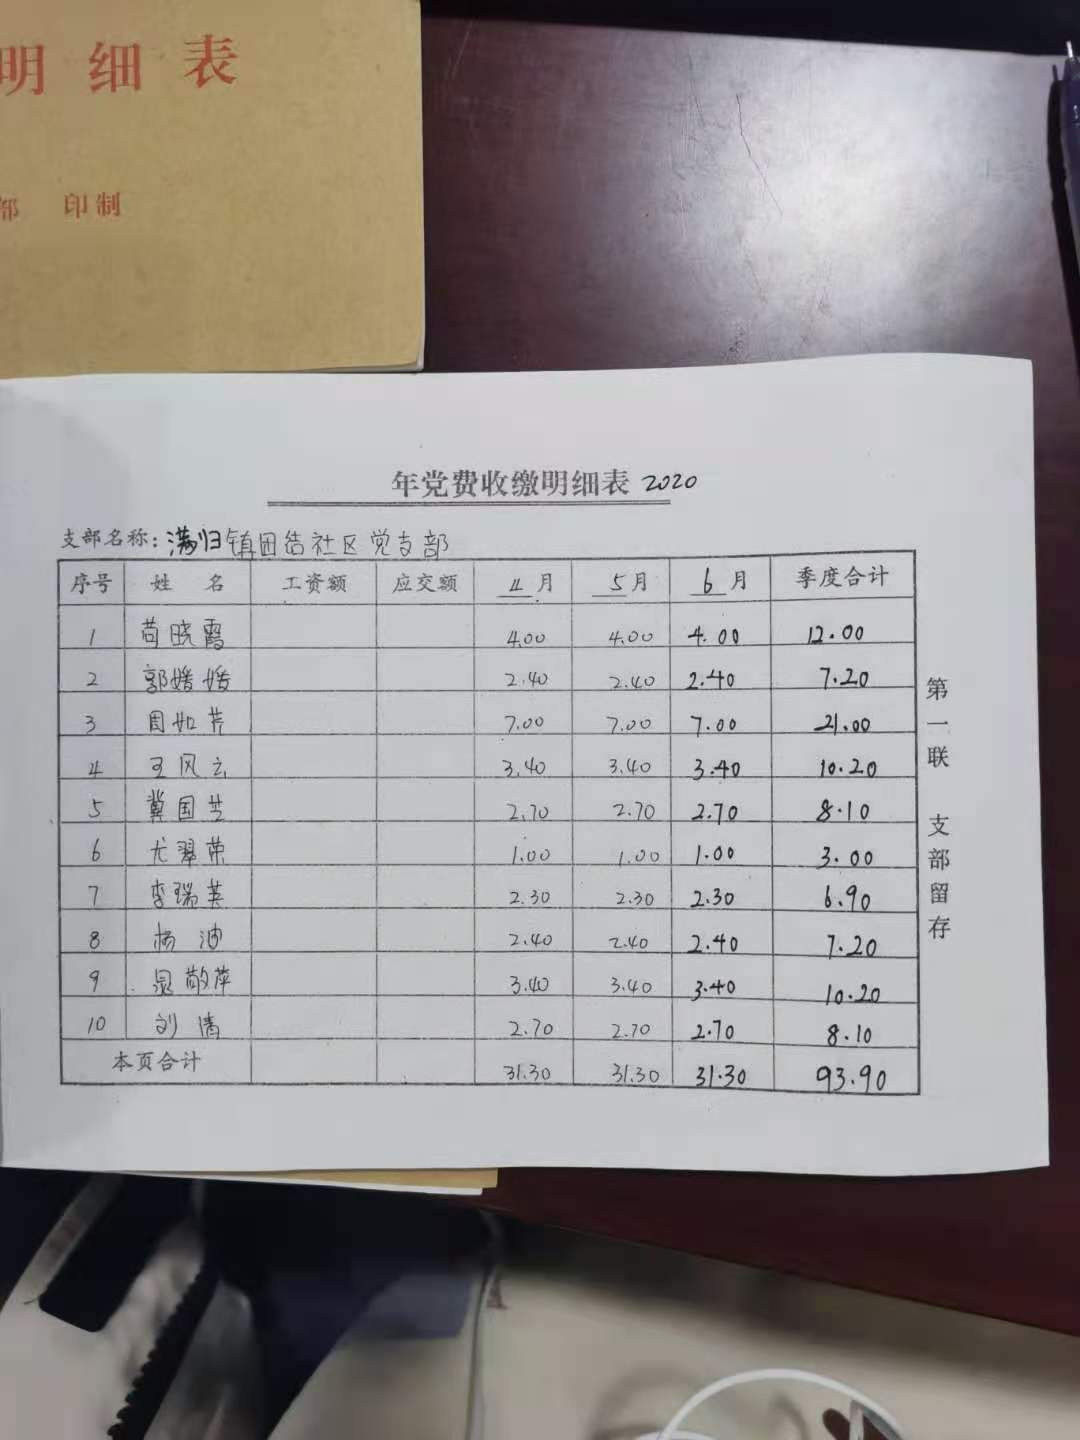 明细表
部 印制
年党费收缴明细表 2020
支部名称：满归镇团结社区党支部
序号 姓名 工资额 应交额 4月 5月 6月 季度合计
1 苟晓霞 4.00 4.00 4.00 12.00
2 郭媛媛 2.40 2.40 2.40 7.20
3 周如芳 7.00 7.00 7.00 21.00
4 王风云 3.40 3.40 3.40 10.20
5 冀国芝 2.70 2.70 2.70 8.10
6 尤翠荣 1.00 1.00 1.00 3.00
7 李瑞英 2.30 2.30 2.30 6.90
8 杨迪 2.40 2.40 2.40 7.20
9 晁敬萍 3.40 3.40 3.40 10.20
10 刘倩 2.70 2.70 2.70 8.10
本页合计 31.30 31.30 31.30 93.90
第一联 支部留存